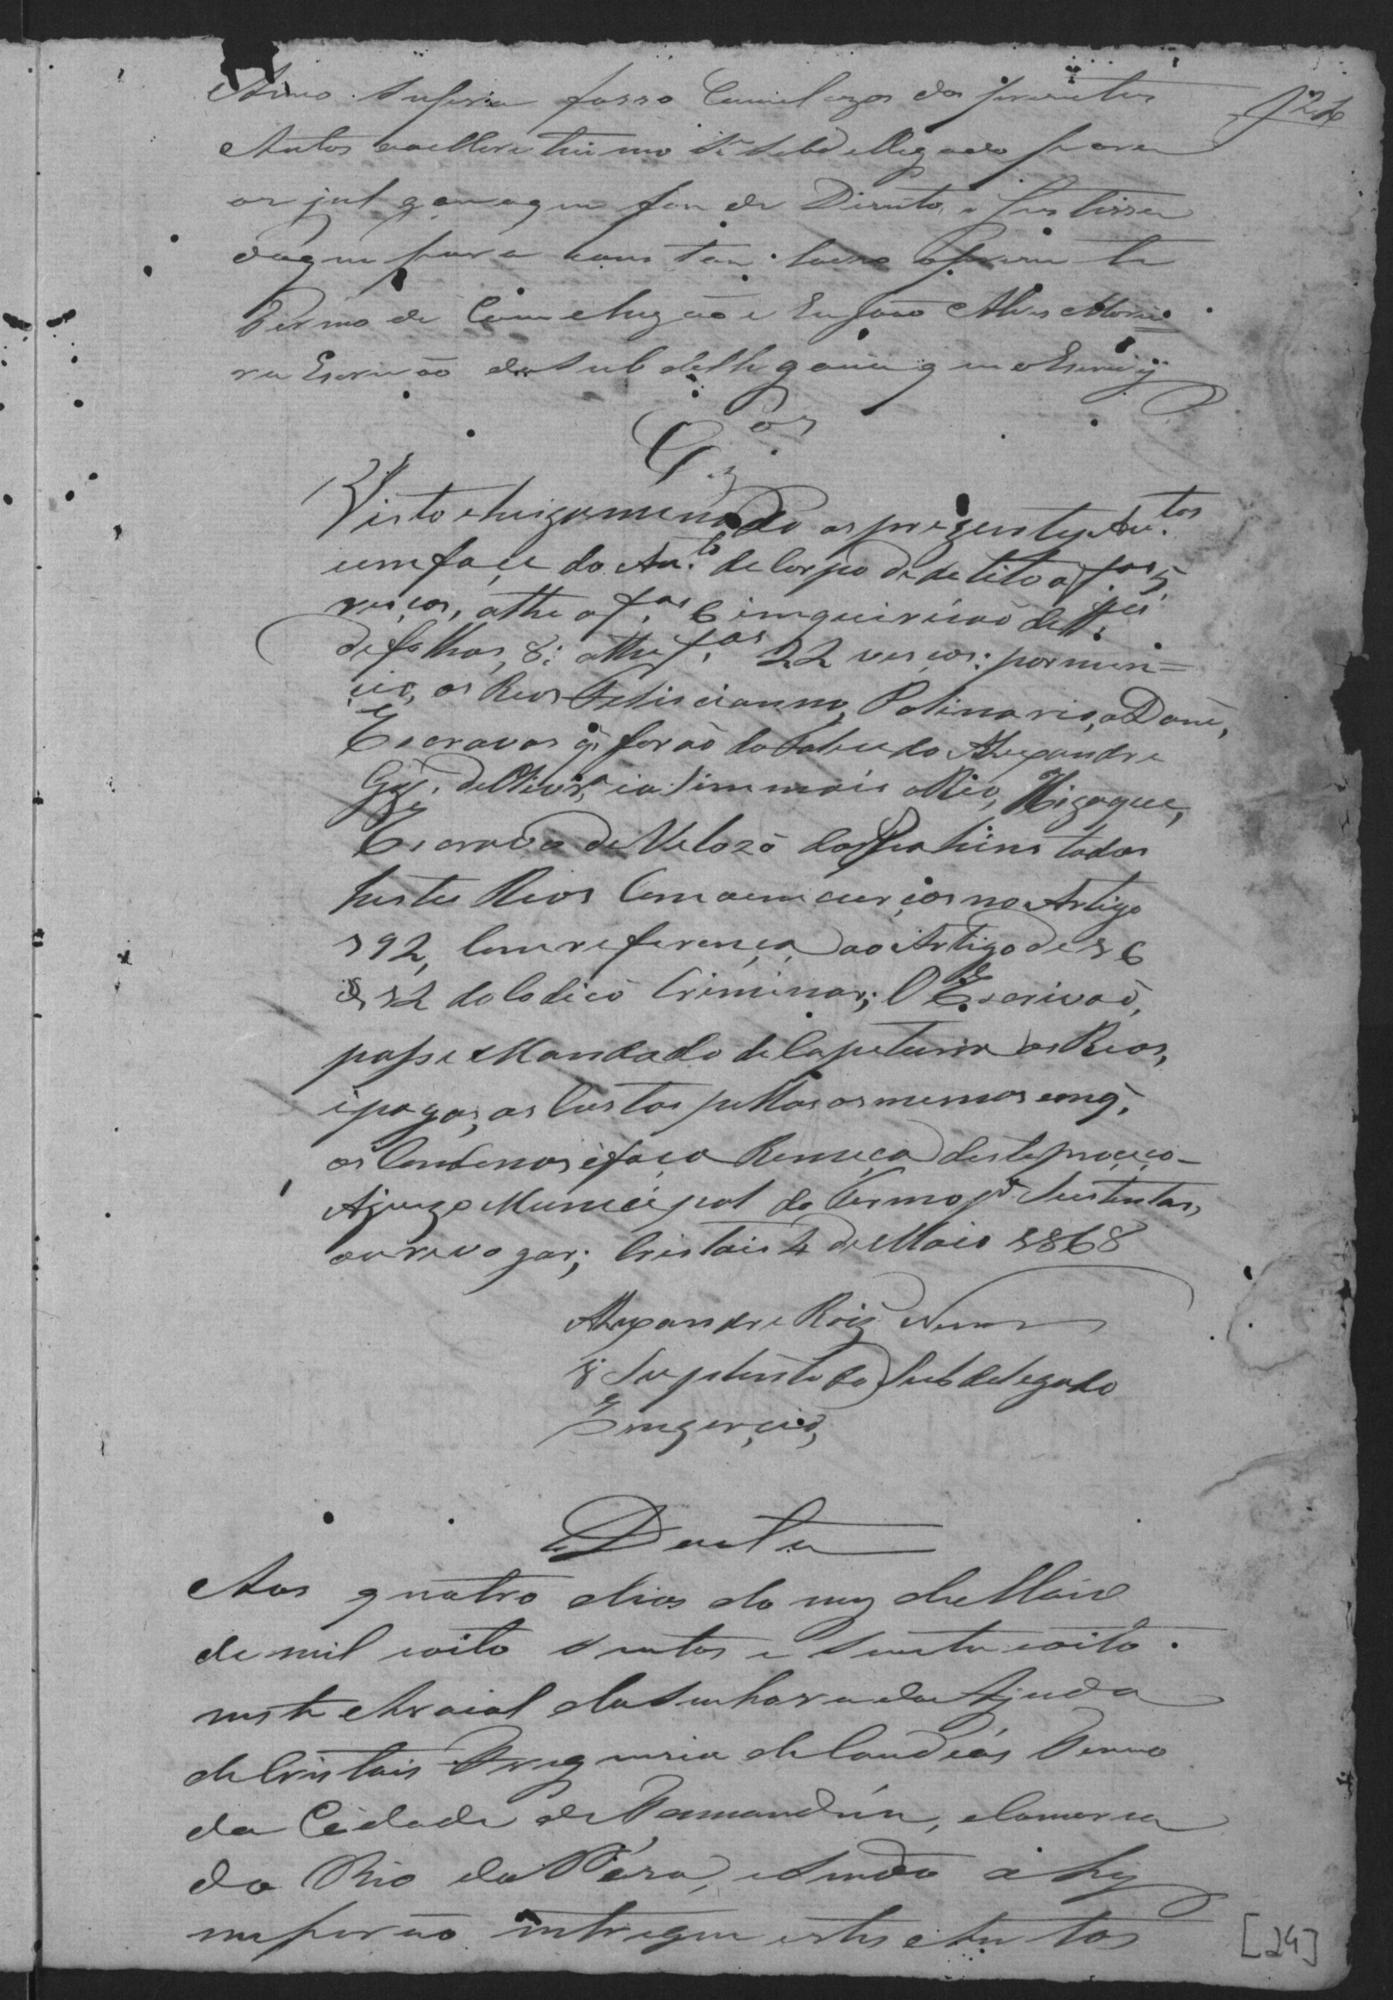 Anno supra fasso Concluzos os prezentes
Autos ao Meretissimo Sr Subdellegado para
os julgar que for de Direito e Justissa
doque para constar lavro o prezente
Termo de Concluzão e Eu João Alves Morei=
ra Escrivão da Subdellegacia que o Escrevy
Visto e huizamenado os prezentes Au.tos
em face do Au.to de Corpo de delito a f.as 5
verços, athe a f.as 6 imquirição de
de folhas, 8; athe f.as 22 verços: pornun=
cio, os Reos Feliscianno, Polinario, a Dane,
Escravos q. forão do falecido Alexandre
de Olivr.a ia sim mais o Reo, Hizaque,
Escravo de Velozo todos
hestes Reos Com aem curços no Artigo
192, Com referença ao Artigo de 16
§ 12 do Codico Criminar; O Escrivão,
passe Mandado de Capeturar os Reos,
i pagas, as Custas pellos os mesmos em q.
os Condenos e faço Remeça deste proceço
Ajuizo Municipal do Termo p.a Sustentar,
ou revogar; Cristais 4 de Maio 1868
Alexandre Roiz Nunes
1 Suplente do Subdelegado
Emzerçicio,
Data
Aos quatro dias do mez de Maio
de mil e oito sentos e secenta e oito
neste Arraial da Senhora da Ajuda
de Cristais Freguezia de Candeias Termo
da Cidade de Tamanduá, Comarca
do Rio das Mortes, e sendo ahy
me forão intregue estes Autos
[24]